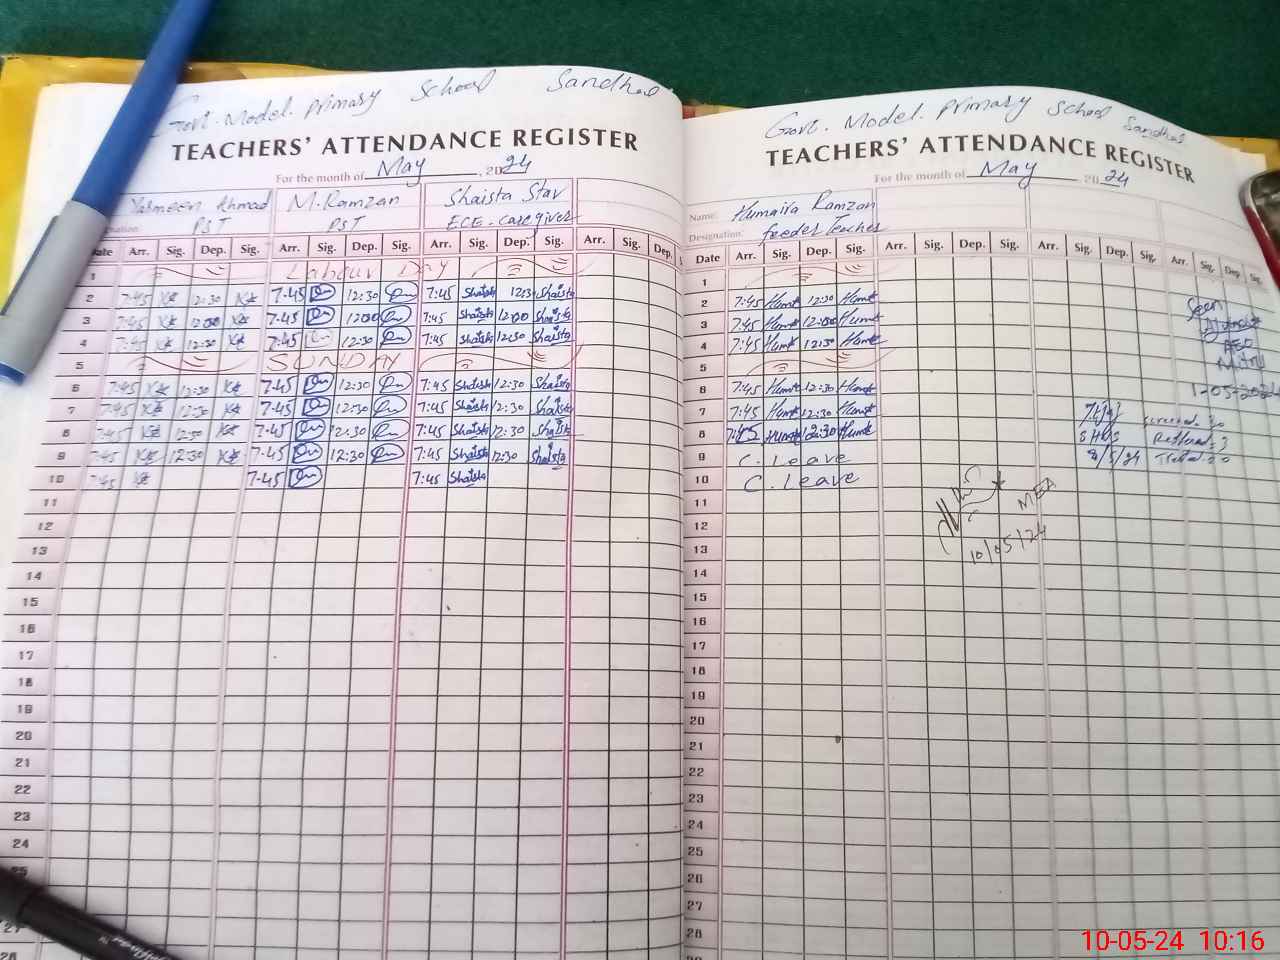 Govt. Model. primary School Sandhal
TEACHERS' ATTENDANCE REGISTER
For the month of May , 2024
Yasmeen Ahmad M. Ramzan Shaista Star
PST PST ECE-caregiver
Date Arr. Sig. Dep. Sig. Arr. Sig. Dep. Sig. Arr. Sig. Dep. Sig. Arr. Sig. Dep.
1 Labour Day
2 7:45 12:30 7:45 12:30 7:45 Shaista 12:30 Shaista
3 7:45 12:00 7:45 12:00 7:45 Shaista 12:00 Shaista
4 7:45 12:30 7:45 12:30 7:45 Shaista 12:30 Shaista
5 SUNDAY
6 7:45 12:30 7:45 12:30 7:45 Shaista 12:30 Shaista
7 7:45 12:30 7:45 12:30 7:45 Shaista 12:30 Shaista
8 7:45 12:30 7:45 12:30 7:45 Shaista 12:30 Shaista
9 7:45 12:30 7:45 12:30 7:45 Shaista 12:30 Shaista
10 7:45 7:45 7:45 Shaista
11
12
13
14
15
16
17
18
19
20
21
22
23
24
25
27
28
Govt. Model primary School Sandhal
TEACHERS' ATTENDANCE REGISTER
For the month of May 2024
Name: Humaira Ramzan
Designation: feeder Teacher
Date Arr. Sig. Dep. Sig. Arr. Sig. Dep. Sig. Arr. Sig. Dep. Sig. Arr. Sig. Dep. Sig.
1
2 7:45 12:30
3 7:45 12:00
4 7:45 12:30
5
6 7:45 12:30
7 7:45 12:30
8 7:45 12:30
9 C. Leave
10 C. Leave
11
12
13
14
15
16
17
18
19
20
21
22
23
24
25
26
27
28
Seen
AEO
1-05-2024
8/5/24
MEA
10/05/24
10-05-24 10:16